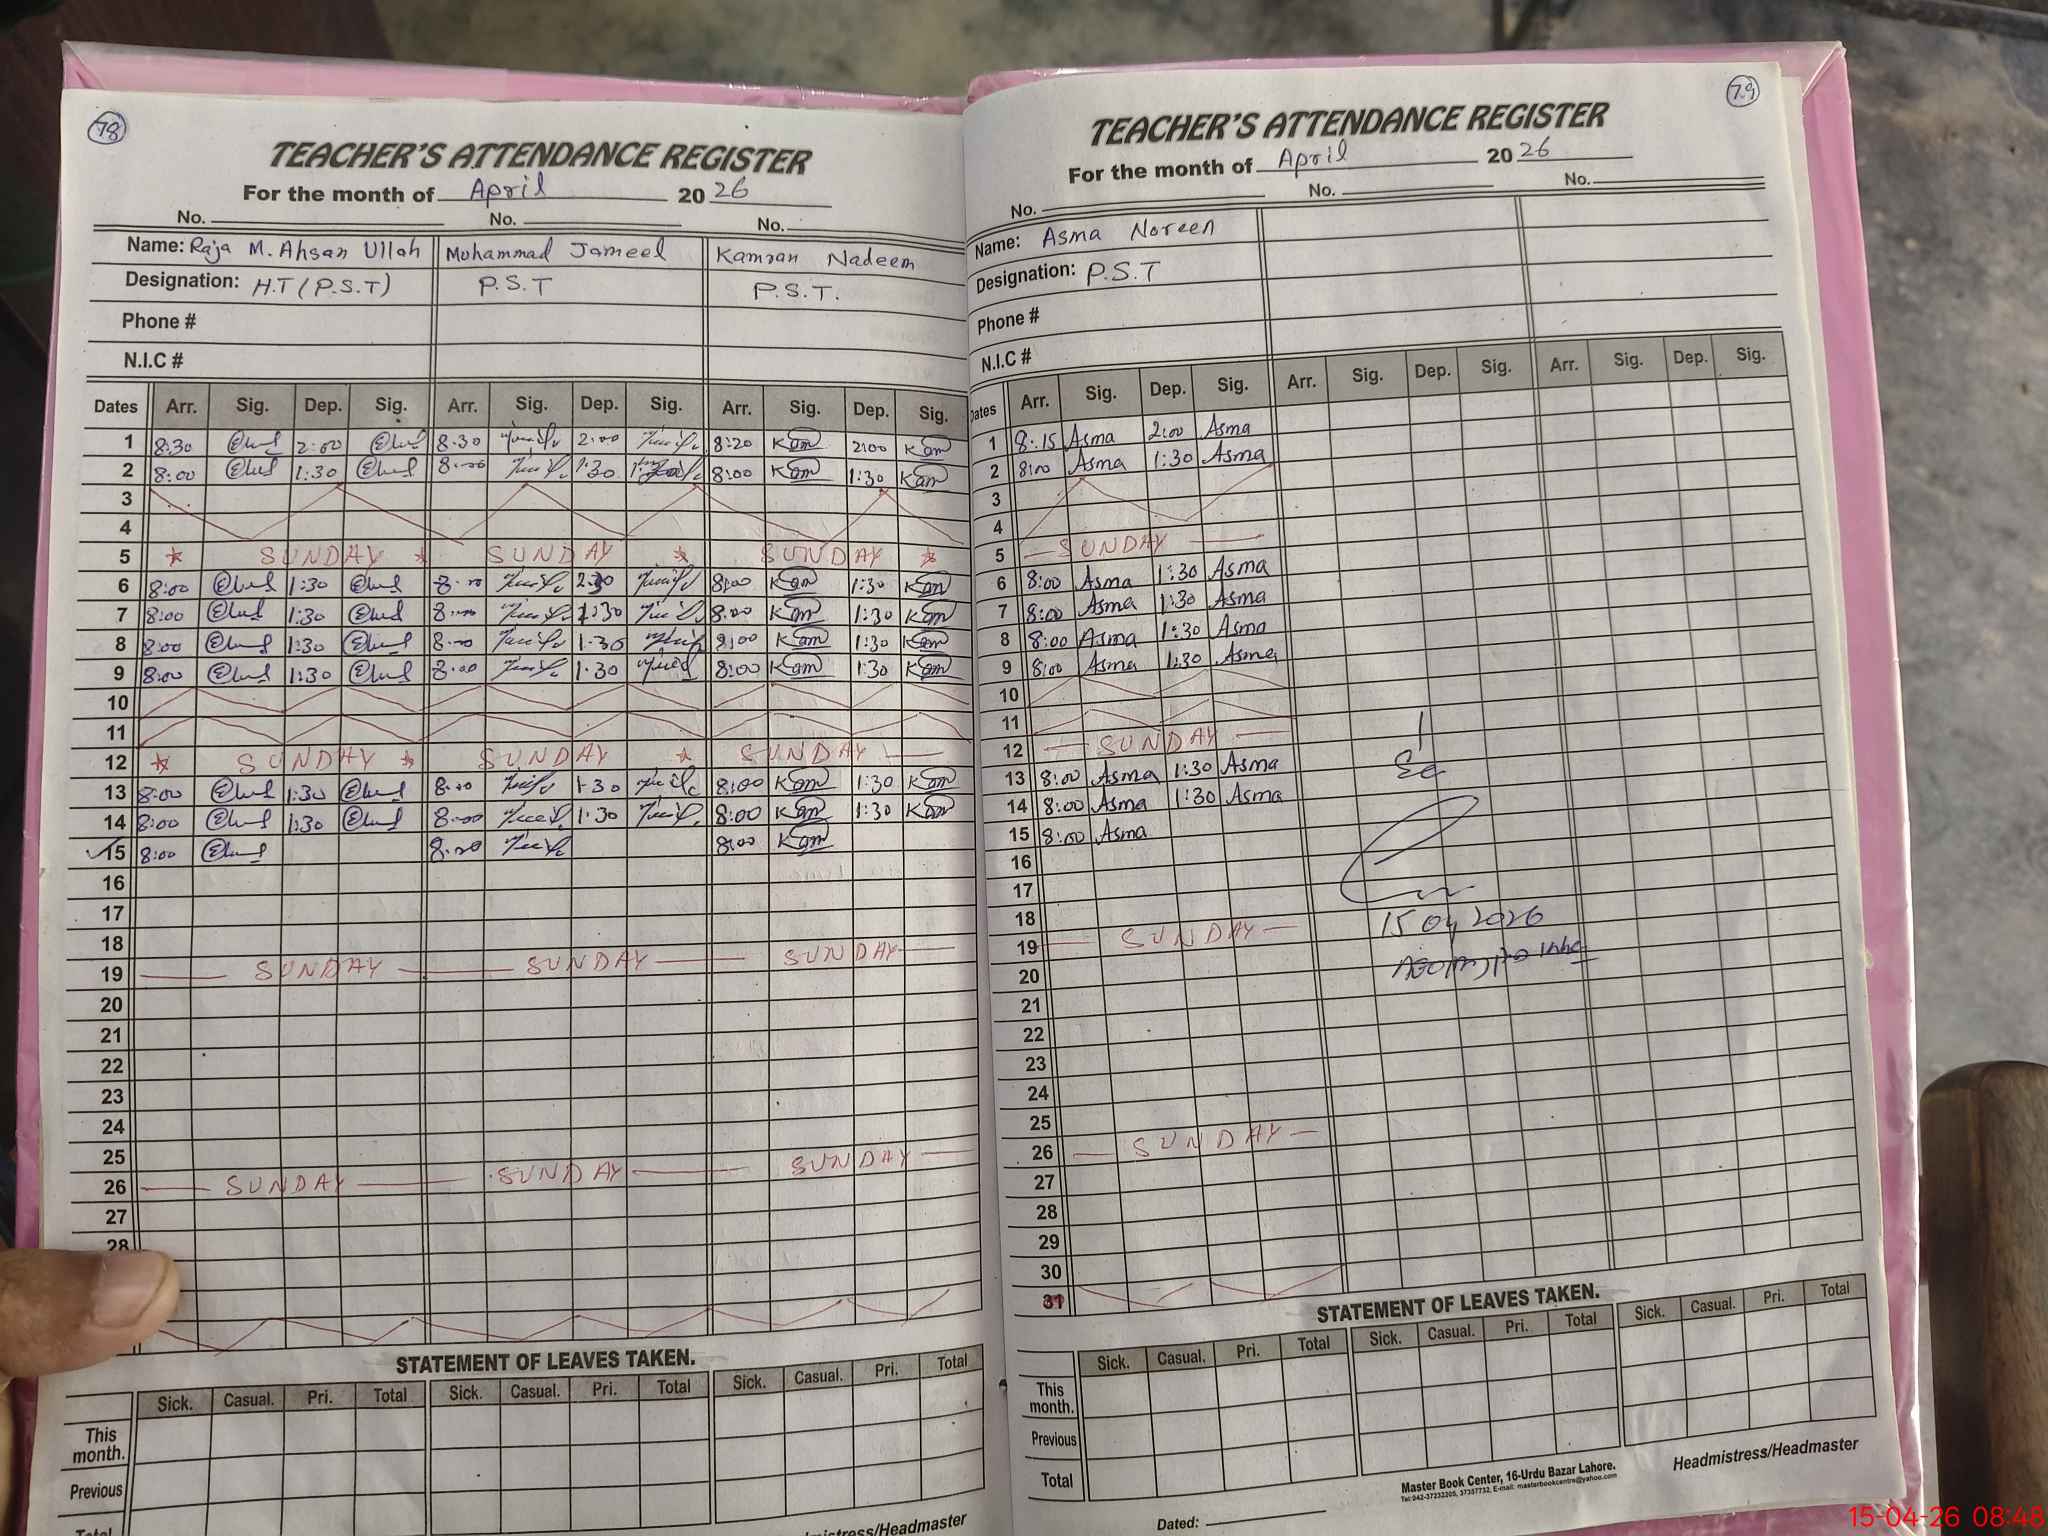 78
TEACHER'S ATTENDANCE REGISTER
For the month of April 2026
No. No. No.
Name: Raja M. Ahsan Ullah Muhammad Jameel Kamran Nadeem
Designation: H.T (P.S.T) P.S.T P.S.T.
Phone #
N.I.C #
Dates Arr. Sig. Dep. Sig. Arr. Sig. Dep. Sig. Arr. Sig. Dep. Sig.
1 8:30 2:00 8:30 2:00 8:20 Kam 2:00 Kam
2 8:00 1:30 8:00 1:30 8:00 Kam 1:30 Kam
3
4
5 SUNDAY SUNDAY SUNDAY
6 8:00 1:30 8:00 8:00 Kam 1:30 Kam
7 8:00 1:30 8:00 1:30 8:00 Kam 1:30 Kam
8 8:00 1:30 8:00 1:30 8:00 Kam 1:30 Kam
9 8:00 1:30 8:00 1:30 8:00 Kam 1:30 Kam
10
11
12 SUNDAY SUNDAY SUNDAY
13 8:00 1:30 8:00 1:30 8:00 Kam 1:30 Kam
14 8:00 1:30 8:00 1:30 8:00 Kam 1:30 Kam
15 8:00 8:00 8:00 Kam
16
17
18
19 SUNDAY SUNDAY SUNDAY
20
21
22
23
24
25
26 SUNDAY SUNDAY SUNDAY
27
28
STATEMENT OF LEAVES TAKEN.
Sick. Casual. Pri. Total Sick. Casual. Pri. Total Sick. Casual. Pri. Total
This month.
Previous
Total
79
TEACHER'S ATTENDANCE REGISTER
For the month of April 2026
No. No. No.
Name: Asma Noreen
Designation: P.S.T
Phone #
N.I.C #
Dates Arr. Sig. Dep. Sig. Arr. Sig. Dep. Sig. Arr. Sig. Dep. Sig.
1 8:15 Asma 2:00 Asma
2 8:00 Asma 1:30 Asma
3
4
5 SUNDAY
6 8:00 Asma 1:30 Asma
7 8:00 Asma 1:30 Asma
8 8:00 Asma 1:30 Asma
9 8:00 Asma 1:30 Asma
10
11
12 SUNDAY
13 8:00 Asma 1:30 Asma
14 8:00 Asma 1:30 Asma
15 8:00 Asma
16
17
18
15 04 2026
19 SUNDAY
20
21
22
23
24
25
26 SUNDAY
27
28
29
30
31
STATEMENT OF LEAVES TAKEN.
Sick. Casual. Pri. Total Sick. Casual. Pri. Total Sick. Casual. Pri. Total
This month.
Previous
Total
Headmistress/Headmaster
Master Book Center, 16-Urdu Bazar Lahore.
Dated:
15-04-26 08:48